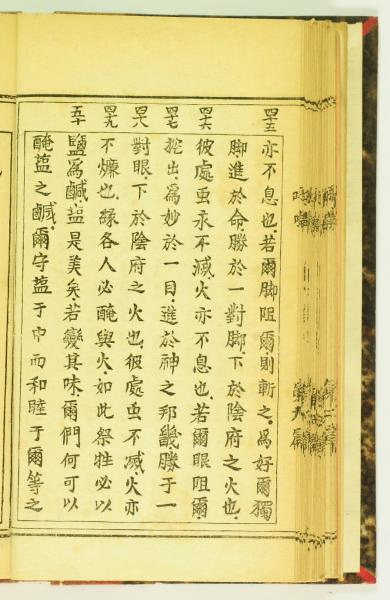 四十五
亦不息也。若爾脚阻爾、則斬之。為好爾獨
脚進於命、勝於一對脚、下於陰府之火也、
四十六
彼處虫永不滅、火亦不息也、若爾眼阻爾、
四十七
挖出、為妙於一目、進於神之邦畿勝于一
四十八
對眼、下於陰府之火也、彼處虫不滅、火亦
四十九
不爁也、緣各人必醃與火、如此祭牲必以
五十
鹽為鹹、塩是美矣、若變其味、爾們何可以
醃塩之鹹、爾守塩于中而和睦于爾等之